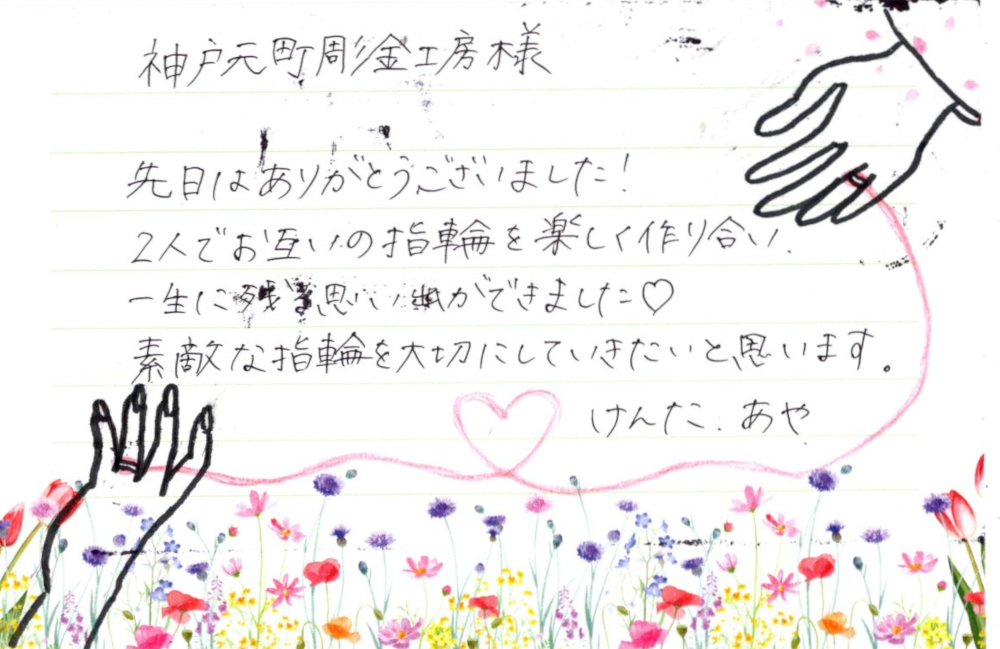 神戸元町彫金工房様
先日はありがとうございました!
2人でお互いの指輪を楽しく作り合い、
一生に残る思い出ができました♡
素敵な指輪を大切にしていきたいと思います。
けんた、あや